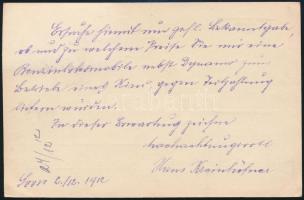 Ersuche hiemit um gefl. Bekanntgabe,
ob und zu welchem Preise Sie mir eine
Benzinlokomobile nebst Dynamo zum
Betriebe eines Kino, gegen Teilzahlung
liefern würden.
In dieser Erwartung zeichne
hochachtungsvoll
Hans
2./12. 1912
24/12 12